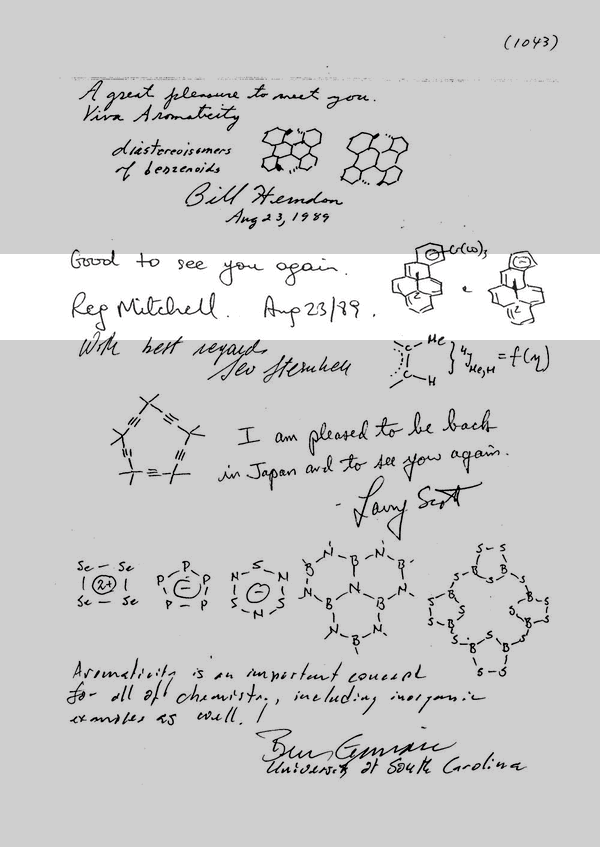 (1043)
A great pleasure to meet you.
Viva Aromaticity
diastereoisomers
of benzenoids
Bill Herndon
Aug 23, 1989
Good to see you again.
Cr(CO)3
Reg Mitchell. Aug 23/89.
With best regards
Sev Sternhell
Me
C
C
H
4J Me,H = f(η)
I am pleased to be back
in Japan and to see you again.
- Larry Scott
Se — Se
2+
Se — Se
P
P P
P — P
S
N N
S S
N
B N B N B
N B N B N
B
S — S
S B B S
Aromaticity is an important concept
for all of chemistry, including inorganic
examples as well!
University of South Carolina